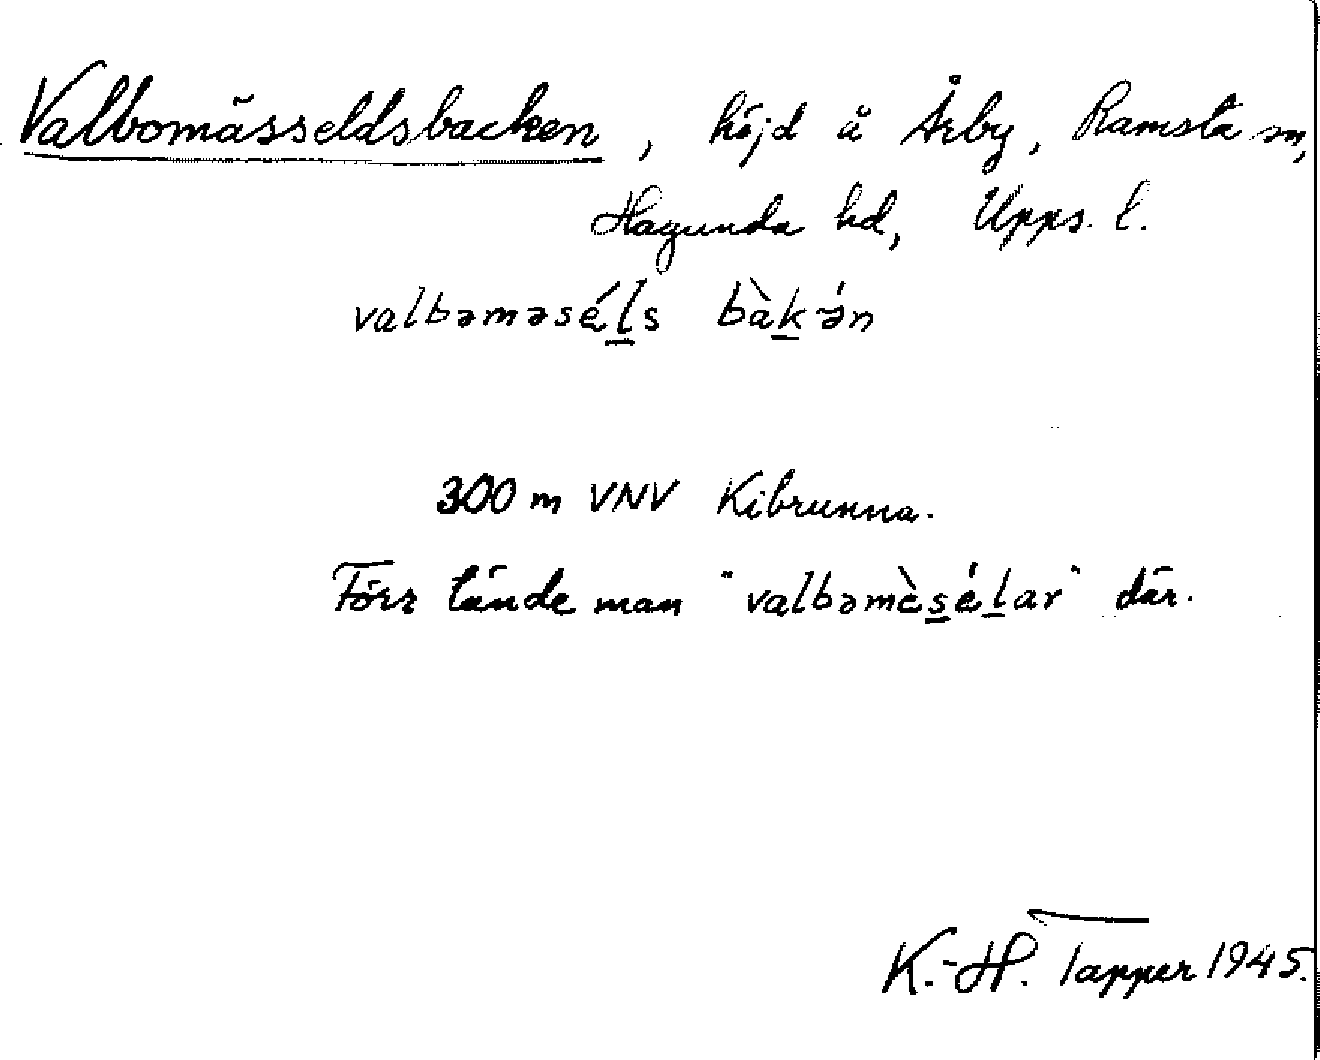 Valbomässeldsbacken, höjd å Årby, Ramsta sn,
Hagunda hd, Upps. l.
valbəməséḻs bàḵ-ə́n
300 m VNV Kibrunna.
Förr tände man "valbəmès̱éḻar" där.
K.-H. Tapper 1945.